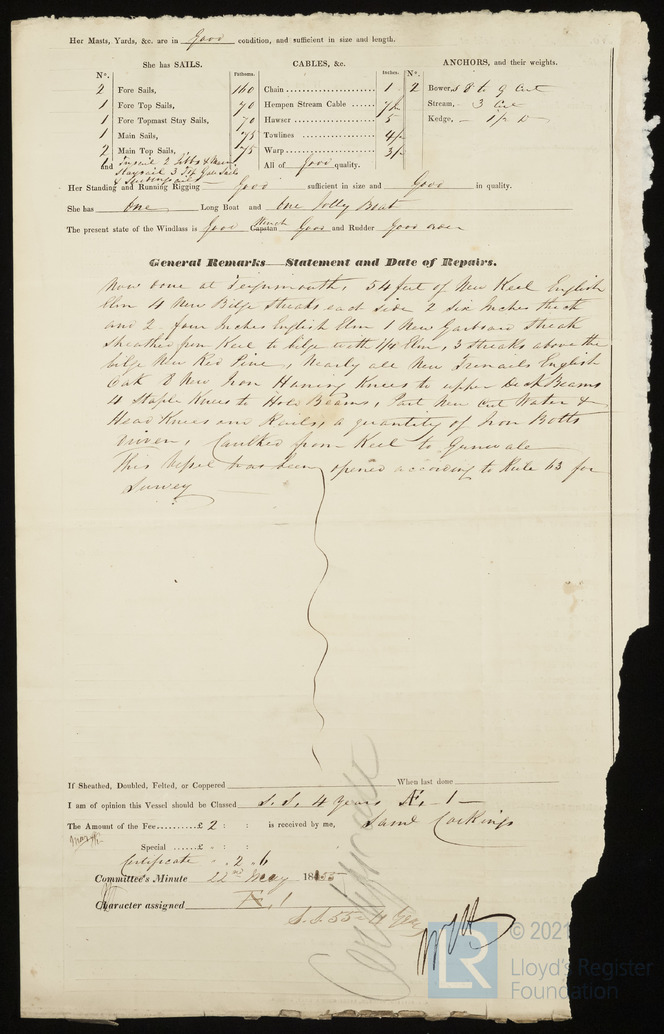 Her Masts, Yards, &c. are in Good condition, and sufficient in size and length.
She has SAILS.
CABLES, &c.
ANCHORS, and their weights.
N°.
Fathoms.
Inches.
N°.
2 Fore Sails, 160 Chain 1 2 Bowers 8 to 9 Cwt
1 Fore Top Sails, 90 Hempen Stream Cable Stream, 3 Cwt
1 Fore Topmast Stay Sails, 70 Hawser 5 Kedge,
1 Main Sails, 75 Towlines
2 Main Top Sails, 75 Warp
and Trysail 2 Jibbs & Main All of Good quality.
Staysail 3 Top Gall Sails
Her Standing and Running Rigging Good sufficient in size and Good in quality.
She has One Long Boat and One Jolly Boat
The present state of the Windlass is Good Capstan Winch Good and Rudder Good
General Remarks—Statement and Date of Repairs.
Now done at Teignmouth, 54 feet of New Keel English
Elm 4 New Bilge Streaks each side 2 Six Inches thick
and 2 four Inches English Elm 1 New Garboard Streak
Sheathed from Keel to bilge with Elm, 3 Streaks above the
bilge New Red Pine, Nearly all New Trenails English
Oak 8 New Iron Hanging Knees to upper Deck Beams
4 Staple Knees to Hold Beams, Part New Cut Water &
Head Knees and Rails, a quantity of Iron Bolts
driven, Caulked from Keel to Gunwale
This Vessel has been opened according to Rule 63 for
Survey
If Sheathed, Doubled, Felted, or Coppered When last done
I am of opinion this Vessel should be Classed S.S. 4 Years Æ - 1 -
The Amount of the Fee £ 2 : : is received by me, Saml Corkings
Special £ : :
Certificate " . 2 . 6
Committee's Minute 22nd May 1855
Character assigned Æ 1
S.S. 55 - 4 Years
Certificate
© 2021
LR
Lloyd's Register
Foundation